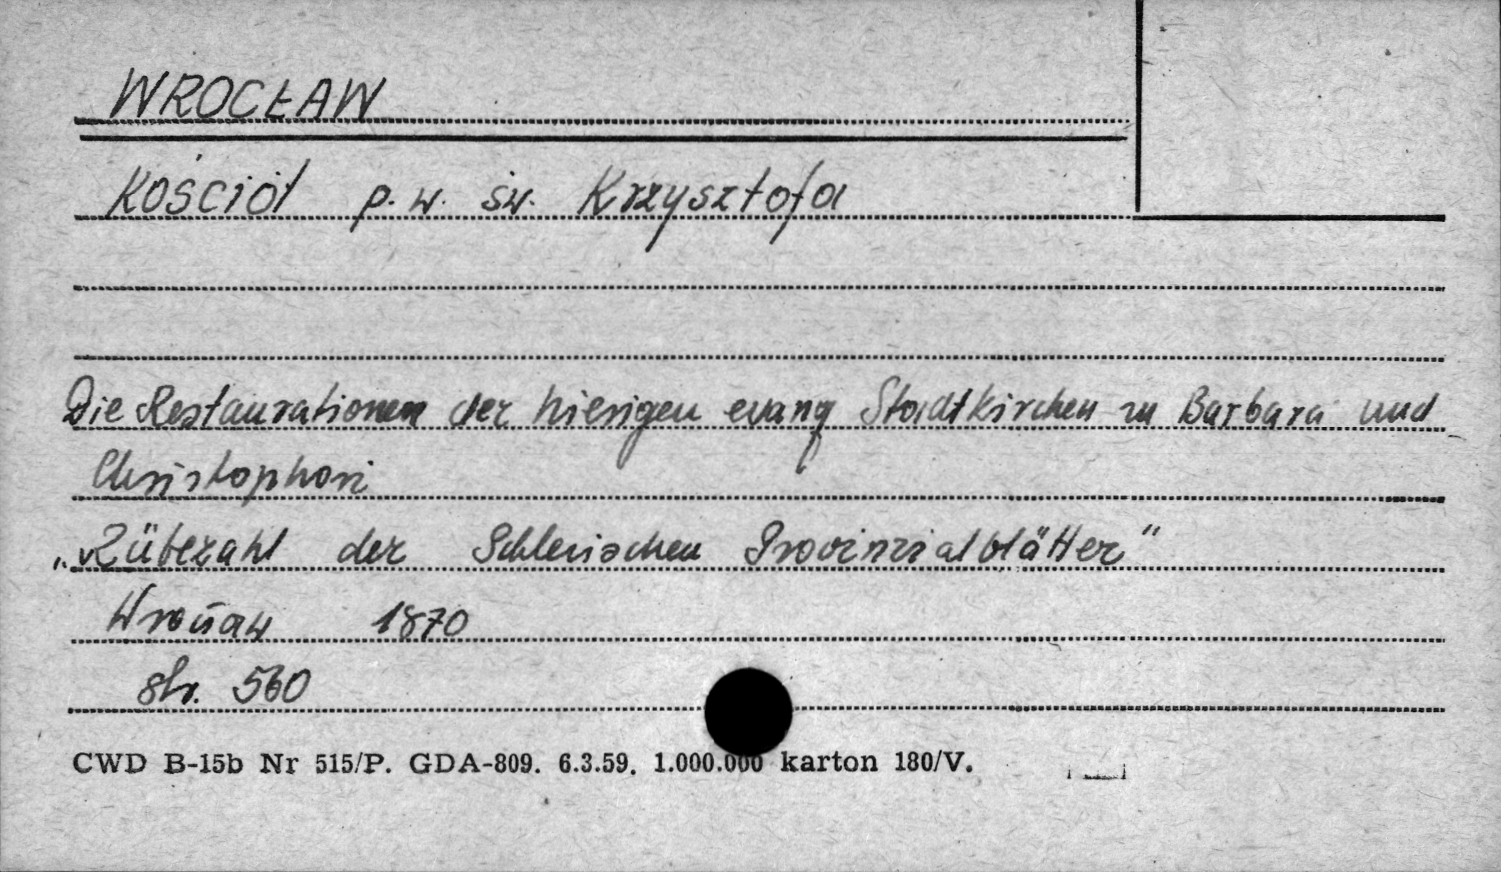 WROCŁAW
Kościół p.w. św. Krzysztofa
Die Restaurationen der hiesigen evang Stadtkirchen zu Barbara und
Christophori
„Rübezahl der Schlesischen Provinzialblätter"
Wrocław 1870
str. 560
CWD B-15b Nr 515/P. GDA-809. 6.3.59. 1.000.000 karton 180/V.